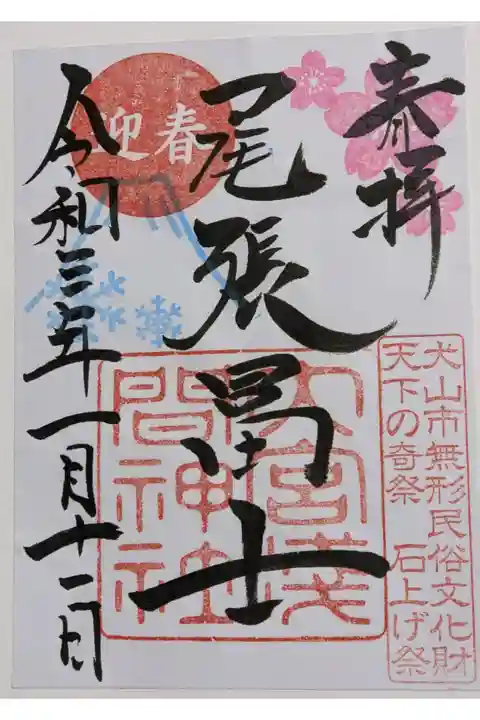 奉拝
犬山市無形民俗文化財
天下の奇祭 石上げ祭
尾張冨士
大宮浅
間神社
迎春
令和三年一月十一日